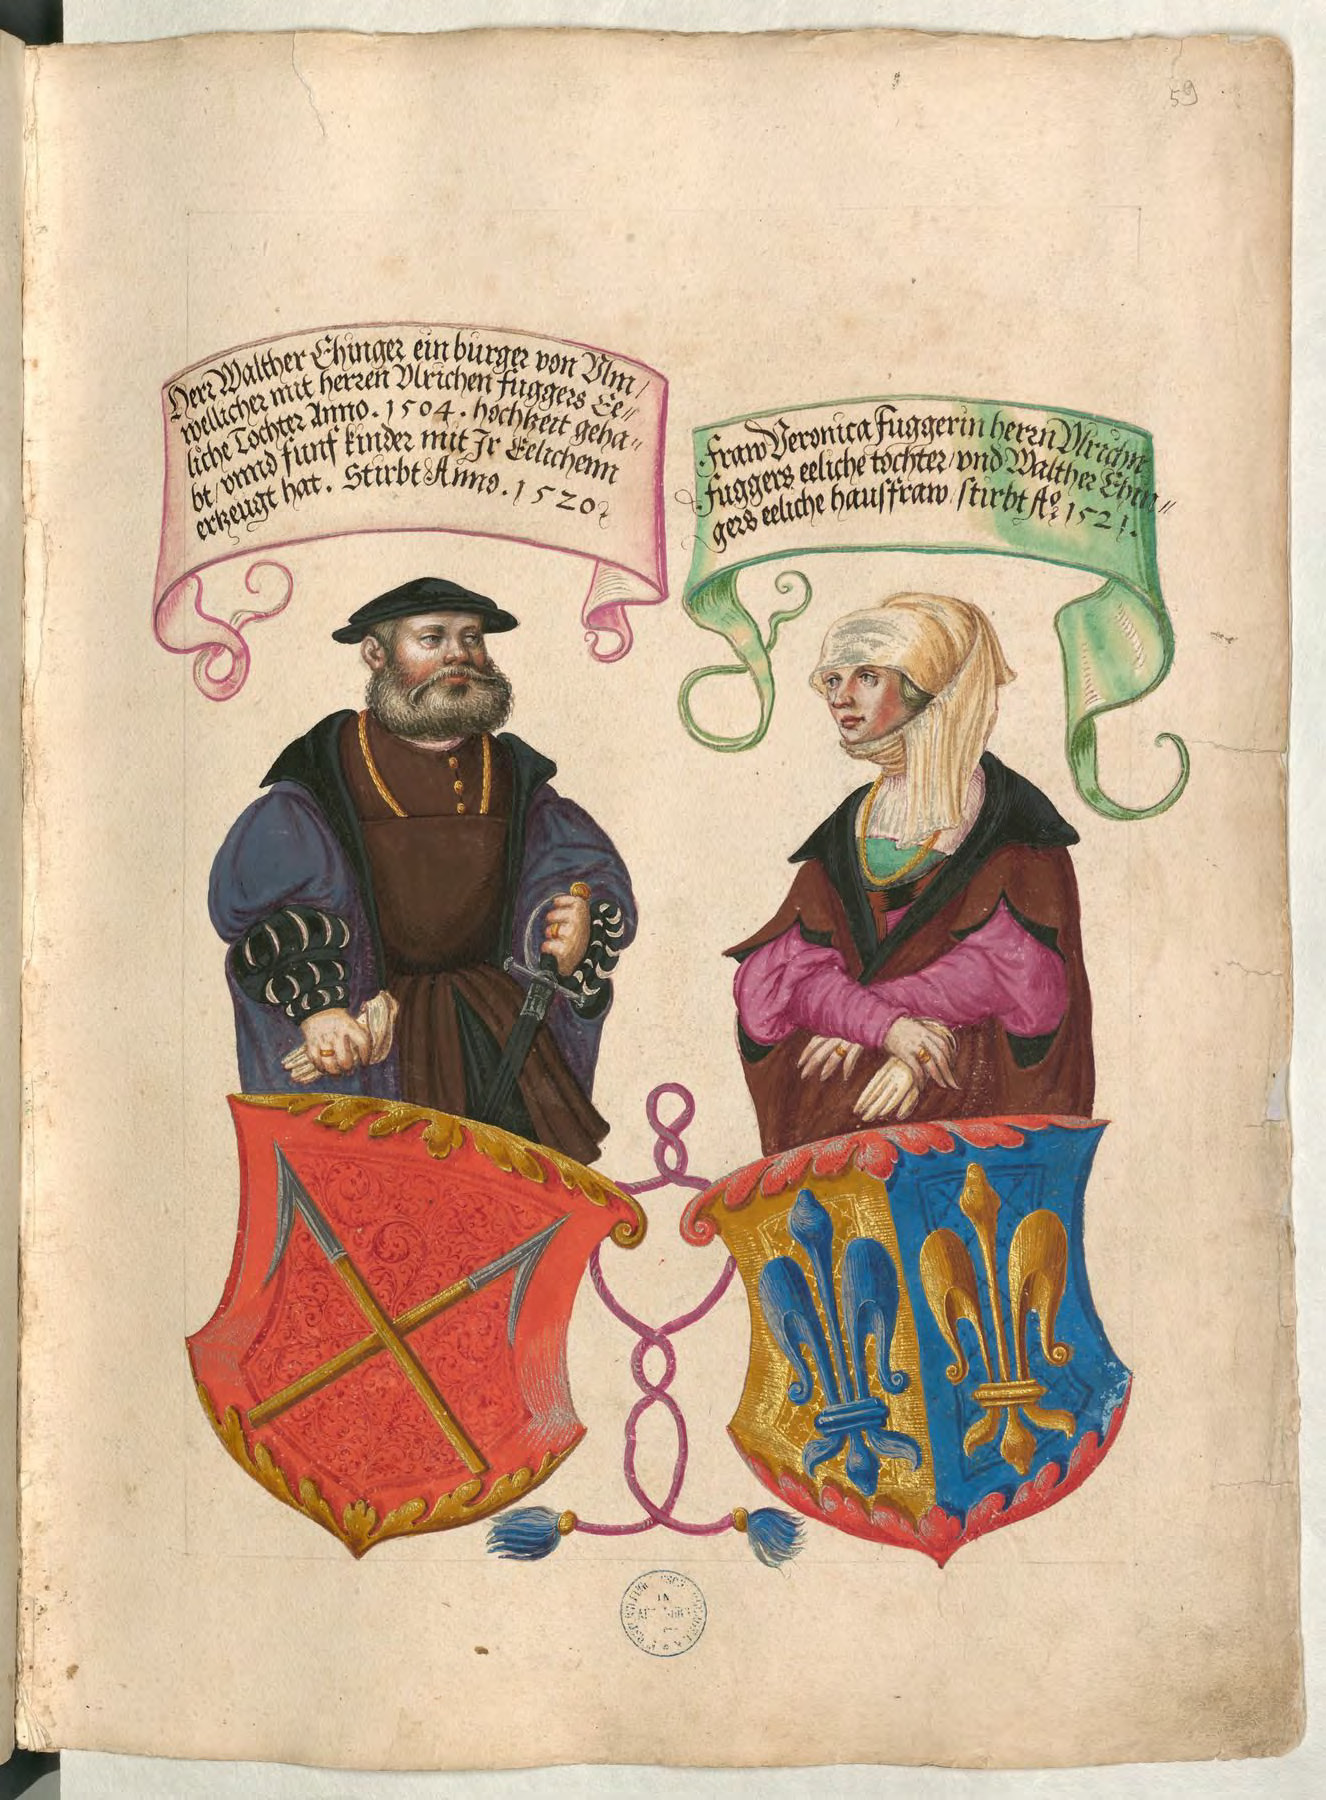 59
Herr Walther Ehinger ein burger von Vlm/
wellicher mit herren Vlrichen fuggers Ee//
liche Tochter Anno . 1504 . hochzeit geha//
bt / vnnd funf kinder mit Jr Eelichenn
erzeugt hat . Stirbt Anno . 1520
Fraw Veronica Fuggerin herrn Vlrichn
fuggers eeliche tochter / vnd Walther Ehin//
gers eeliche hausfraw / stirbt Ao 1521 .